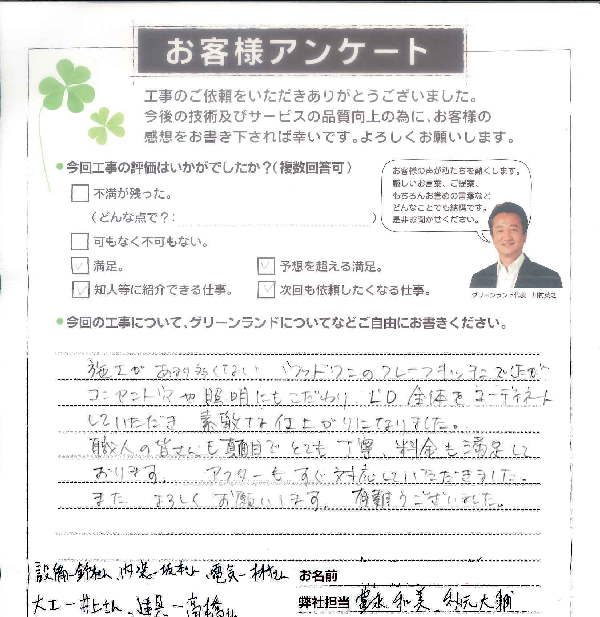 お客様アンケート
工事のご依頼をいただきありがとうございました。
今後の技術及びサービスの品質向上の為に、お客様の
感想をお書き下されば幸いです。よろしくお願いします。
●今回工事の評価はいかがでしたか?(複数回答可)
お客様の声が私たちを動くします。
厳しいお言葉、ご提案、
もちろんお褒めの言葉など
どんなことでも結構です。
是非お聞かせください。
不満が残った。
(どんな点で?: )
可もなく不可もない。
満足。
予想を超える満足。
知人等に紹介できる仕事。
次回も依頼したくなる仕事。
グリーンランド代表
●今回の工事について、グリーンランドについてなどご自由にお書きください。
施工が あまり多くない ウッドワンのフレームキッチンでしたが
コンセントや照明にもこだわり LD全体をコーディネート
していただき 素敵な仕上がりになりました。
職人の皆さんも真面目でとても丁寧、料金も満足して
おります。 アフターも すぐ対応していただきました。
また よろしくお願いします。 有難うございました。
お名前
大工-井上さん、建具-高橋
弊社担当 和美、大輔